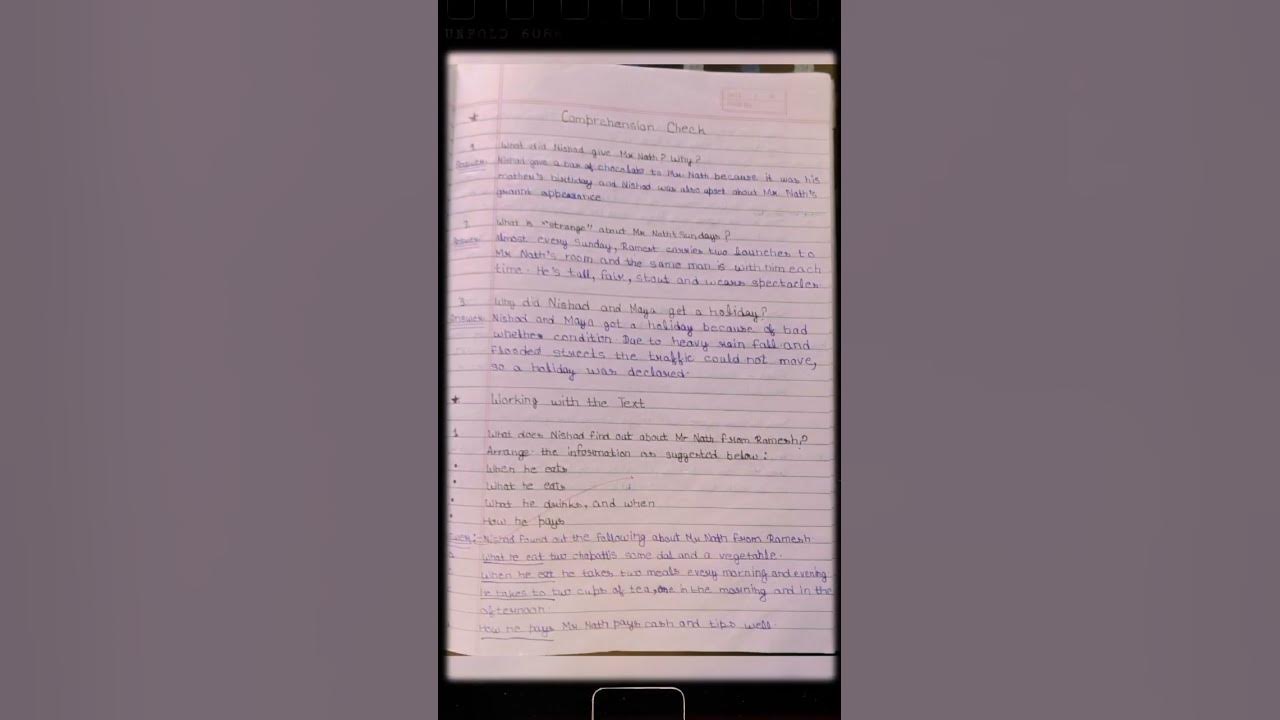 UNFOLD
Comprehension Check
What did Nishad give Mr Nath? Why?
Answer Nishad gave a bar of chocolate to Mr. Nath because it was his
mother's birthday and Nishad was also upset about Mr. Nath's
appearance
2. What is "strange" about Mr Nath's Sundays?
Answer almost every Sunday, Ramest carries two launches to
Mr Nath's room and the same man is with him each
time. He's tall, fair, stout and wears spectacles
3. Why did Nishad and Maya get a holiday?
Answer Nishad and Maya got a holiday because of bad
whether condition Due to heavy rain fall and
Flooded streets the traffic could not move,
so a holiday was declared.
Working with the Text
1. What does Nishad find out about Mr Nath from Ramesh?
Arrange the information as suggested below:
When he eats
What he eats
What he drinks, and when
How he pays
Nishad found out the following about Mr Nath from Ramesh.
What he eat two chapattis some dal and a vegetable.
When he eat he takes two meals every morning and evening
he takes to two cups of tea, one in the morning and in the
afternoon.
How he pays Mr. Nath pays cash and tips well.